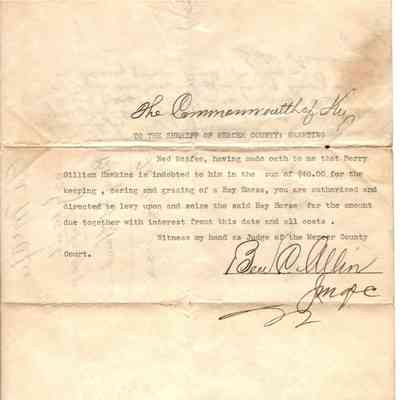 The Commonwealth of Ky
TO THE SHERIFF OF MERCER COUNTY: GREETING
Ned McAfee, having made oath to me that Perry
Gilliam Hawkins is indebted to him in the sum of $40.00 for the
keeping , caring and grazing of a Bay Horse, you are authorized and
directed to levy upon and seize the said Bay Horse for the amount
due together with interest from this date and all costs .
Witness my hand as Judge of the Mercer County
Court.
Ben C. Allin